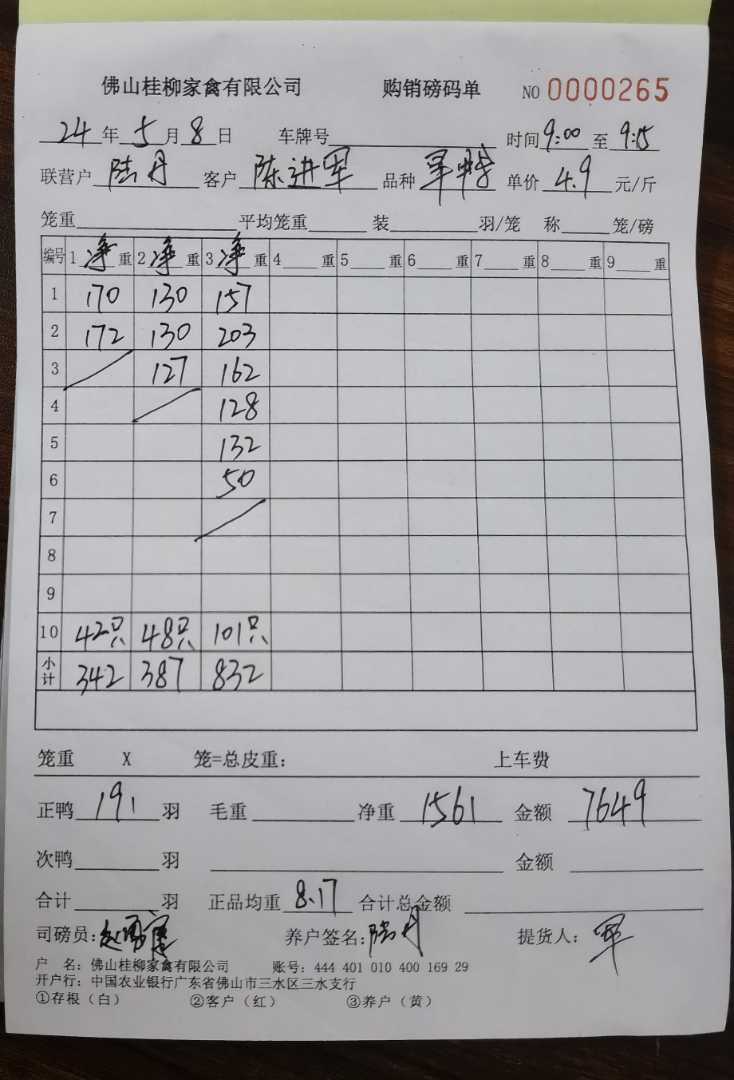 佛山桂柳家禽有限公司 购销磅码单 NO 0000265
24年5月8日 车牌号 时间9:00至9:15
联营户 陆丹 客户 陈进军 品种 单价 4.9 元/斤
笼重 平均笼重 装 羽/笼 称 笼/磅
编号 1净重 2净重 3净重 4 重 5 重 6 重 7 重 8 重 9 重
1 170 130 157
2 172 130 203
3 127 162
4 128
5 132
6 50
7
8
9
10 42只 48只 101只
小计 342 387 832
笼重 X 笼=总皮重: 上车费
正鸭 191 羽 毛重 净重 1561 金额 7649
次鸭 羽 金额
合计 羽 正品均重 8.17 合计总金额
司磅员: 养户签名: 陆丹 提货人: 军
户 名: 佛山桂柳家禽有限公司 账号: 444 401 010 400 169 29
开户行: 中国农业银行广东省佛山市三水区三水支行
①存根(白) ②客户(红) ③养户(黄)